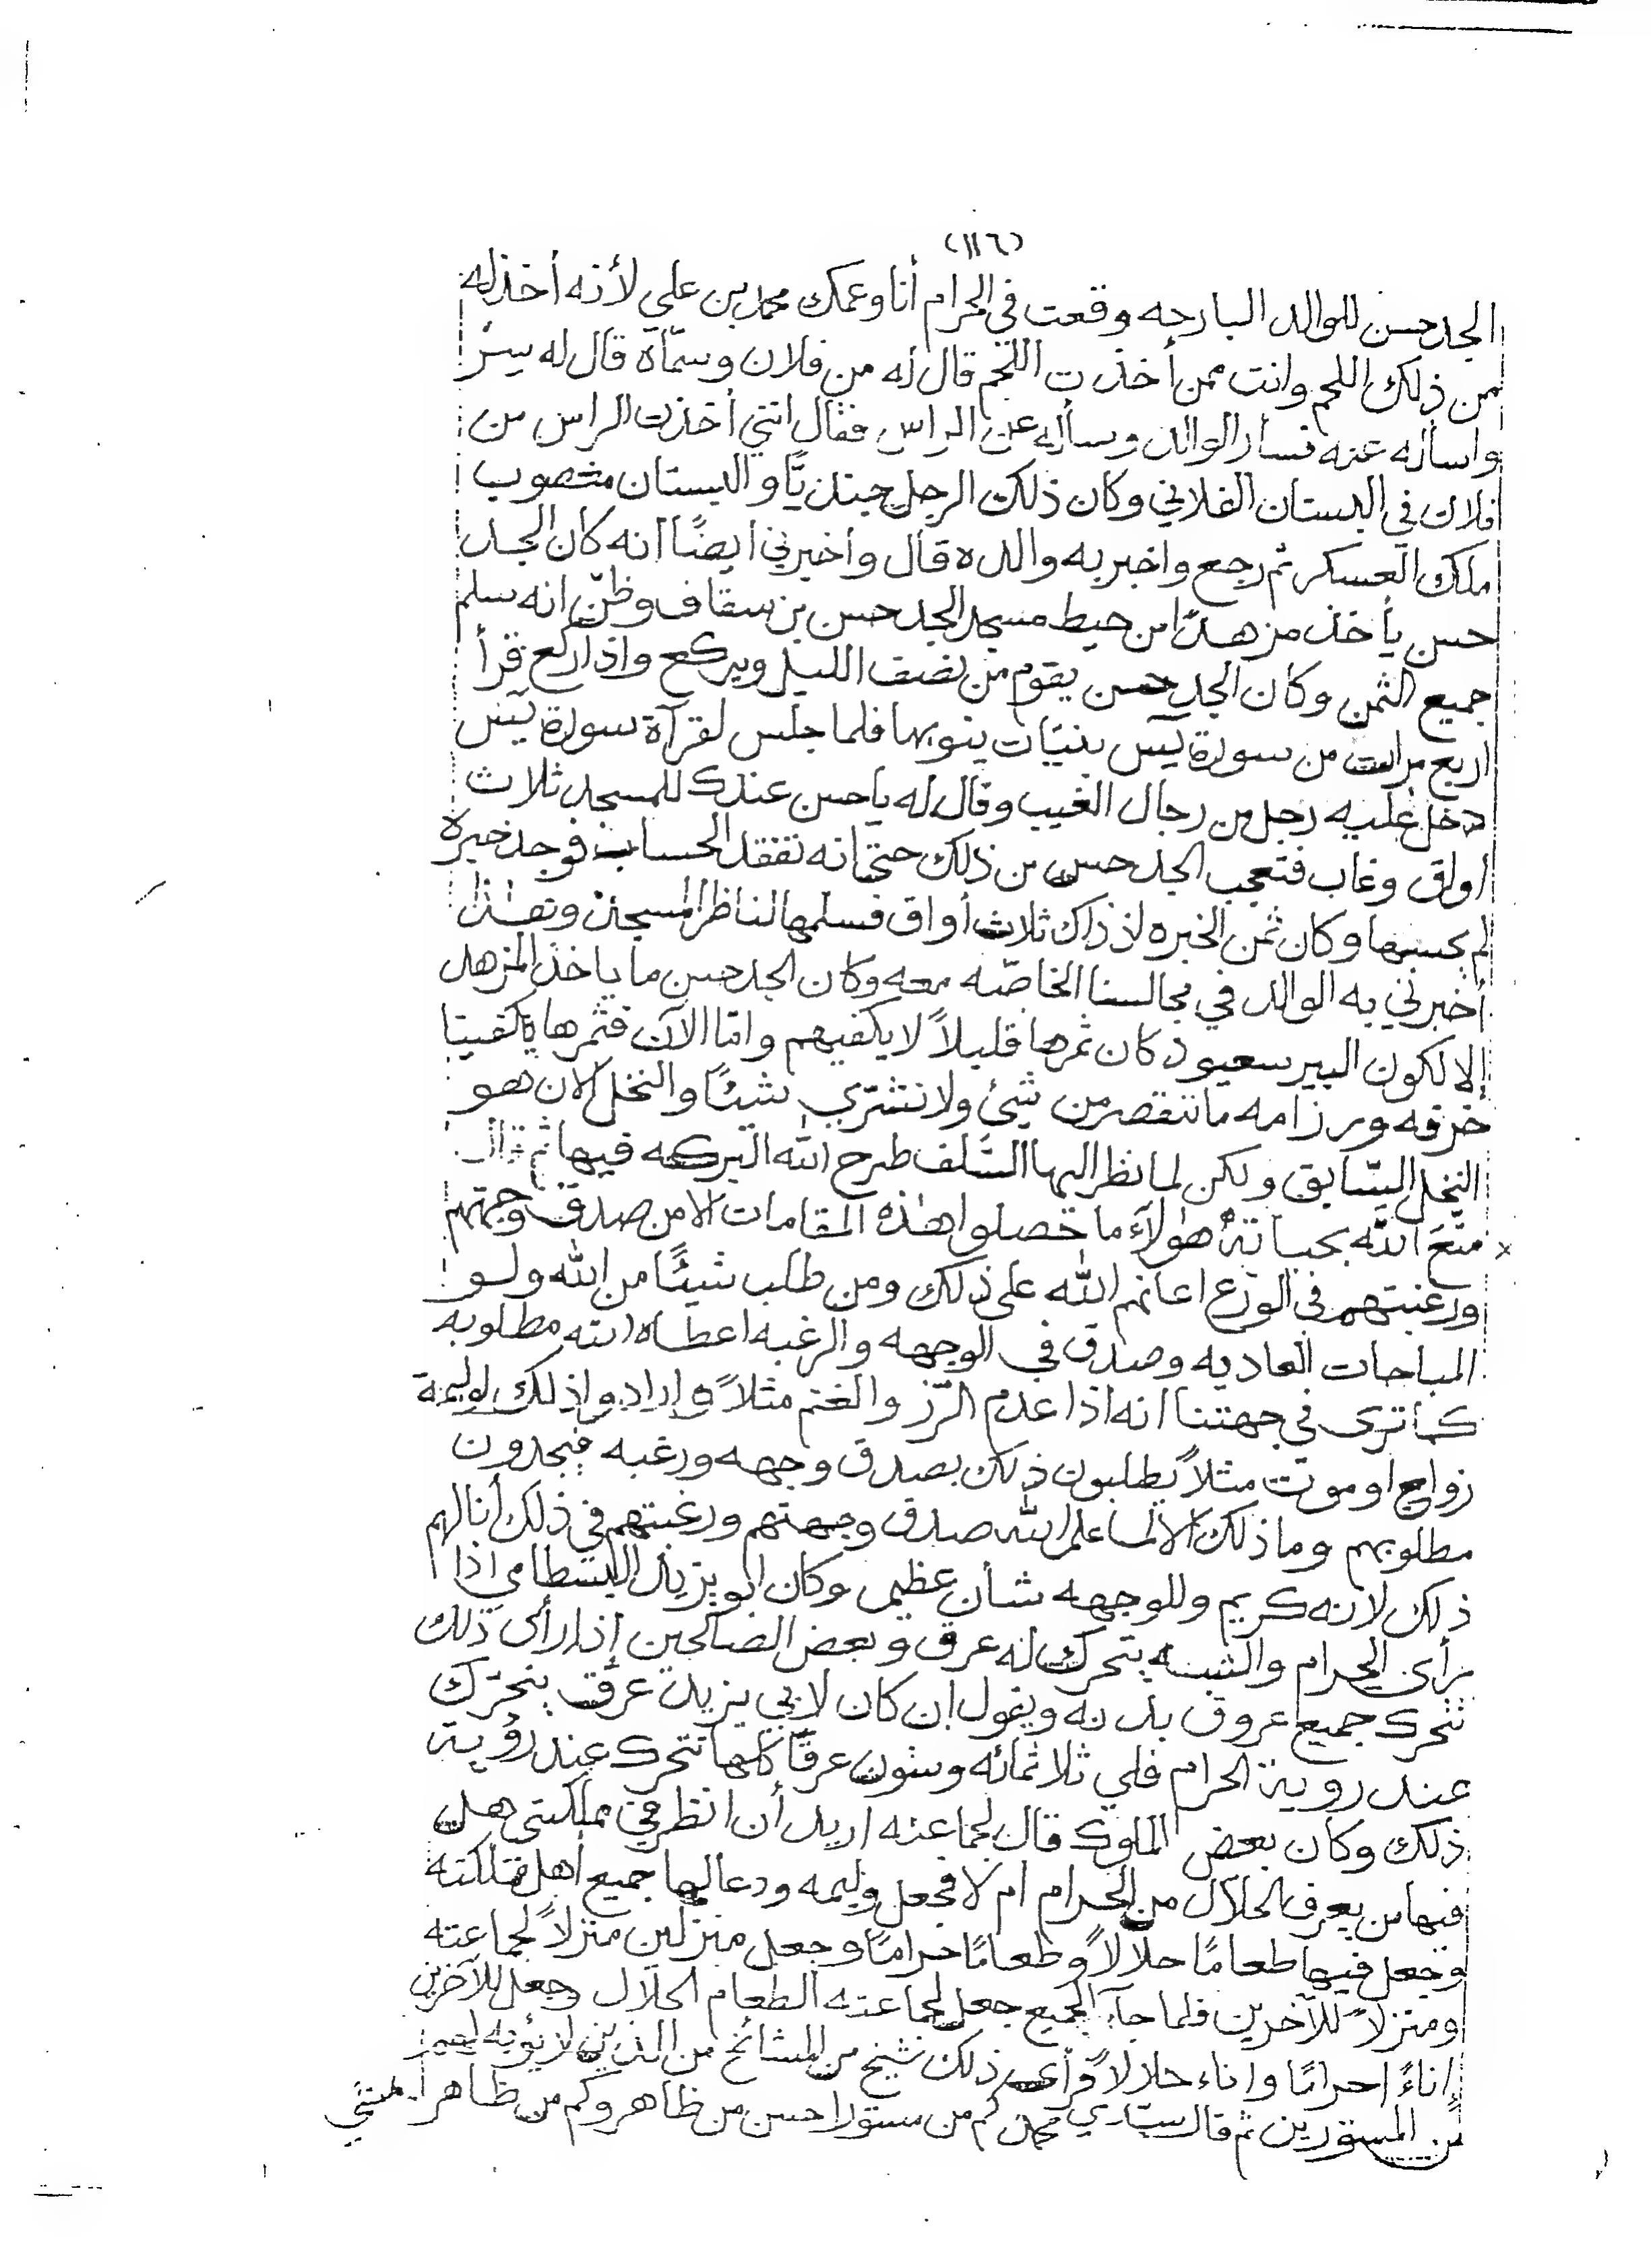 (١١٦)
الجد حسن للوالد البارحه وقعت في الحرام أنا وعمك محمد بن علي لأنه أخذ له
من ذلك اللحم وانت ممن أخذت اللحم قال له من فلان وسمّاه قال له سِرْ
واسأله عنه فسار الوالد وسأله عن الراس فقال انني أخذت الراس من
فلان في البستان الفلاني وكان ذلك الرجل جنديًّا والبستان مغصوب
ملك العسكر ثم رجع واخبر به والده قال وأخبرني ايضًا انه كان الجد
حسن يأخذ مزهدًا من حيط مسجد الجد حسن بن سقاف وظنّ انه سلم
جميع الثمن وكان الجد حسن يقوم من نصف الليل ويركع واذا ركع قرأ
اربع مرات من سورة يٓس بنيّات ينويها فلما جلس لقرآة سورة يٓس
دخل عليه رجل من رجال الغيب وقال له ياحسن عندك للمسجد ثلاث
أواق وغاب فتعجب الجد حسن من ذلك حتى انه تفقد الحساب فوجد خبره
لم يحسبها وكان ثمن الخبره اذ ذاك ثلاث أواق فسلمها لناظر المسجد وهذا
أخبرني به الوالد في مجالسنا الخاصّه معه وكان الجد حسن ما ياخذ المزهد
إلا لكون البير سعيود كان ثمرها قليلاً لا يكفيهم وامّا الآن فثمرها يكفينا
خرفه ومرزامه ما ننقص من شيء ولا نشتري شيئًا والنخل الآن هو
النخل السّابق ولكن لما نظر اليها السّلف طرح الله البركه فيها ثم قال
متعَ الله بحياتهِ هولآء ما حصلوا هذه المقامات الا من صدق وجهتهم
ورغبتهم في الورع اعانهم الله على ذلك ومن طلب شيئًا من الله ولو
المباحات العاديه وصدق في الوجهه والرغبه اعطاه الله مطلوبه
كما ترى في جهتنا انه اذا عدم الرّز والغنم مثلاً وارادوا ذلك لوليمة
زواج او موت مثلاً يطلبون ذلك بصدق وجهه ورغبه فيجدون
مطلوبهم وما ذلك الا لما علم الله صدق وجهتهم ورغبتهم في ذلك أنالهم
ذلك لانه كريم وللوجهه شأن عظيم وكان ابو يزيد البسطامي اذا
رأى الحرام والشبهه يتحرك له عرق وبعض الصالحين إذا رأى ذلك
تتحرك جميع عروق بدنه ويقول ان كان لابي يزيد عرق يتحرك
عند روية الحرام فلي ثلاثمائه وستون عرقًا كلها تتحرك عند رؤية
ذلك وكان بعض الملوك قال لجماعته اريد أن انظر في مملكتي هل
فيها من يعرف الحلال من الحرام ام لا فجعل وليمه ودعا لها جميع أهل مملكته
وجعل فيها طعامًا حلالاً وطعامًا حرامًا وجعل منزلين منزلاً لجماعته
ومنزلاً للآخرين فلما جآء الجميع جعل لجماعته الطعام الحلال وجعل للآخرين
إناءً احرامًا واناء حلالاً فرأى ذلك شيخ من المشائخ من الذين لا يؤبه لهم
من المستورين ثم قال سيدي محمد كم من مستور احسن من ظاهر وكم من ظاهر